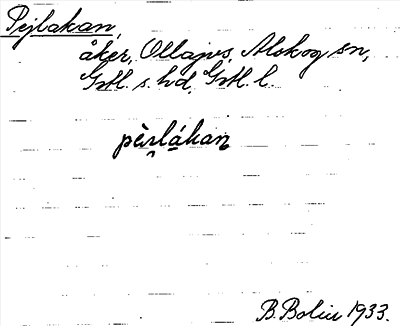 Pejlakan,
åker, Ollajvs, Alskog sn,
Gotl. s. hd, Gotl. l.
pèɪlákan
B. Bolin 1933.